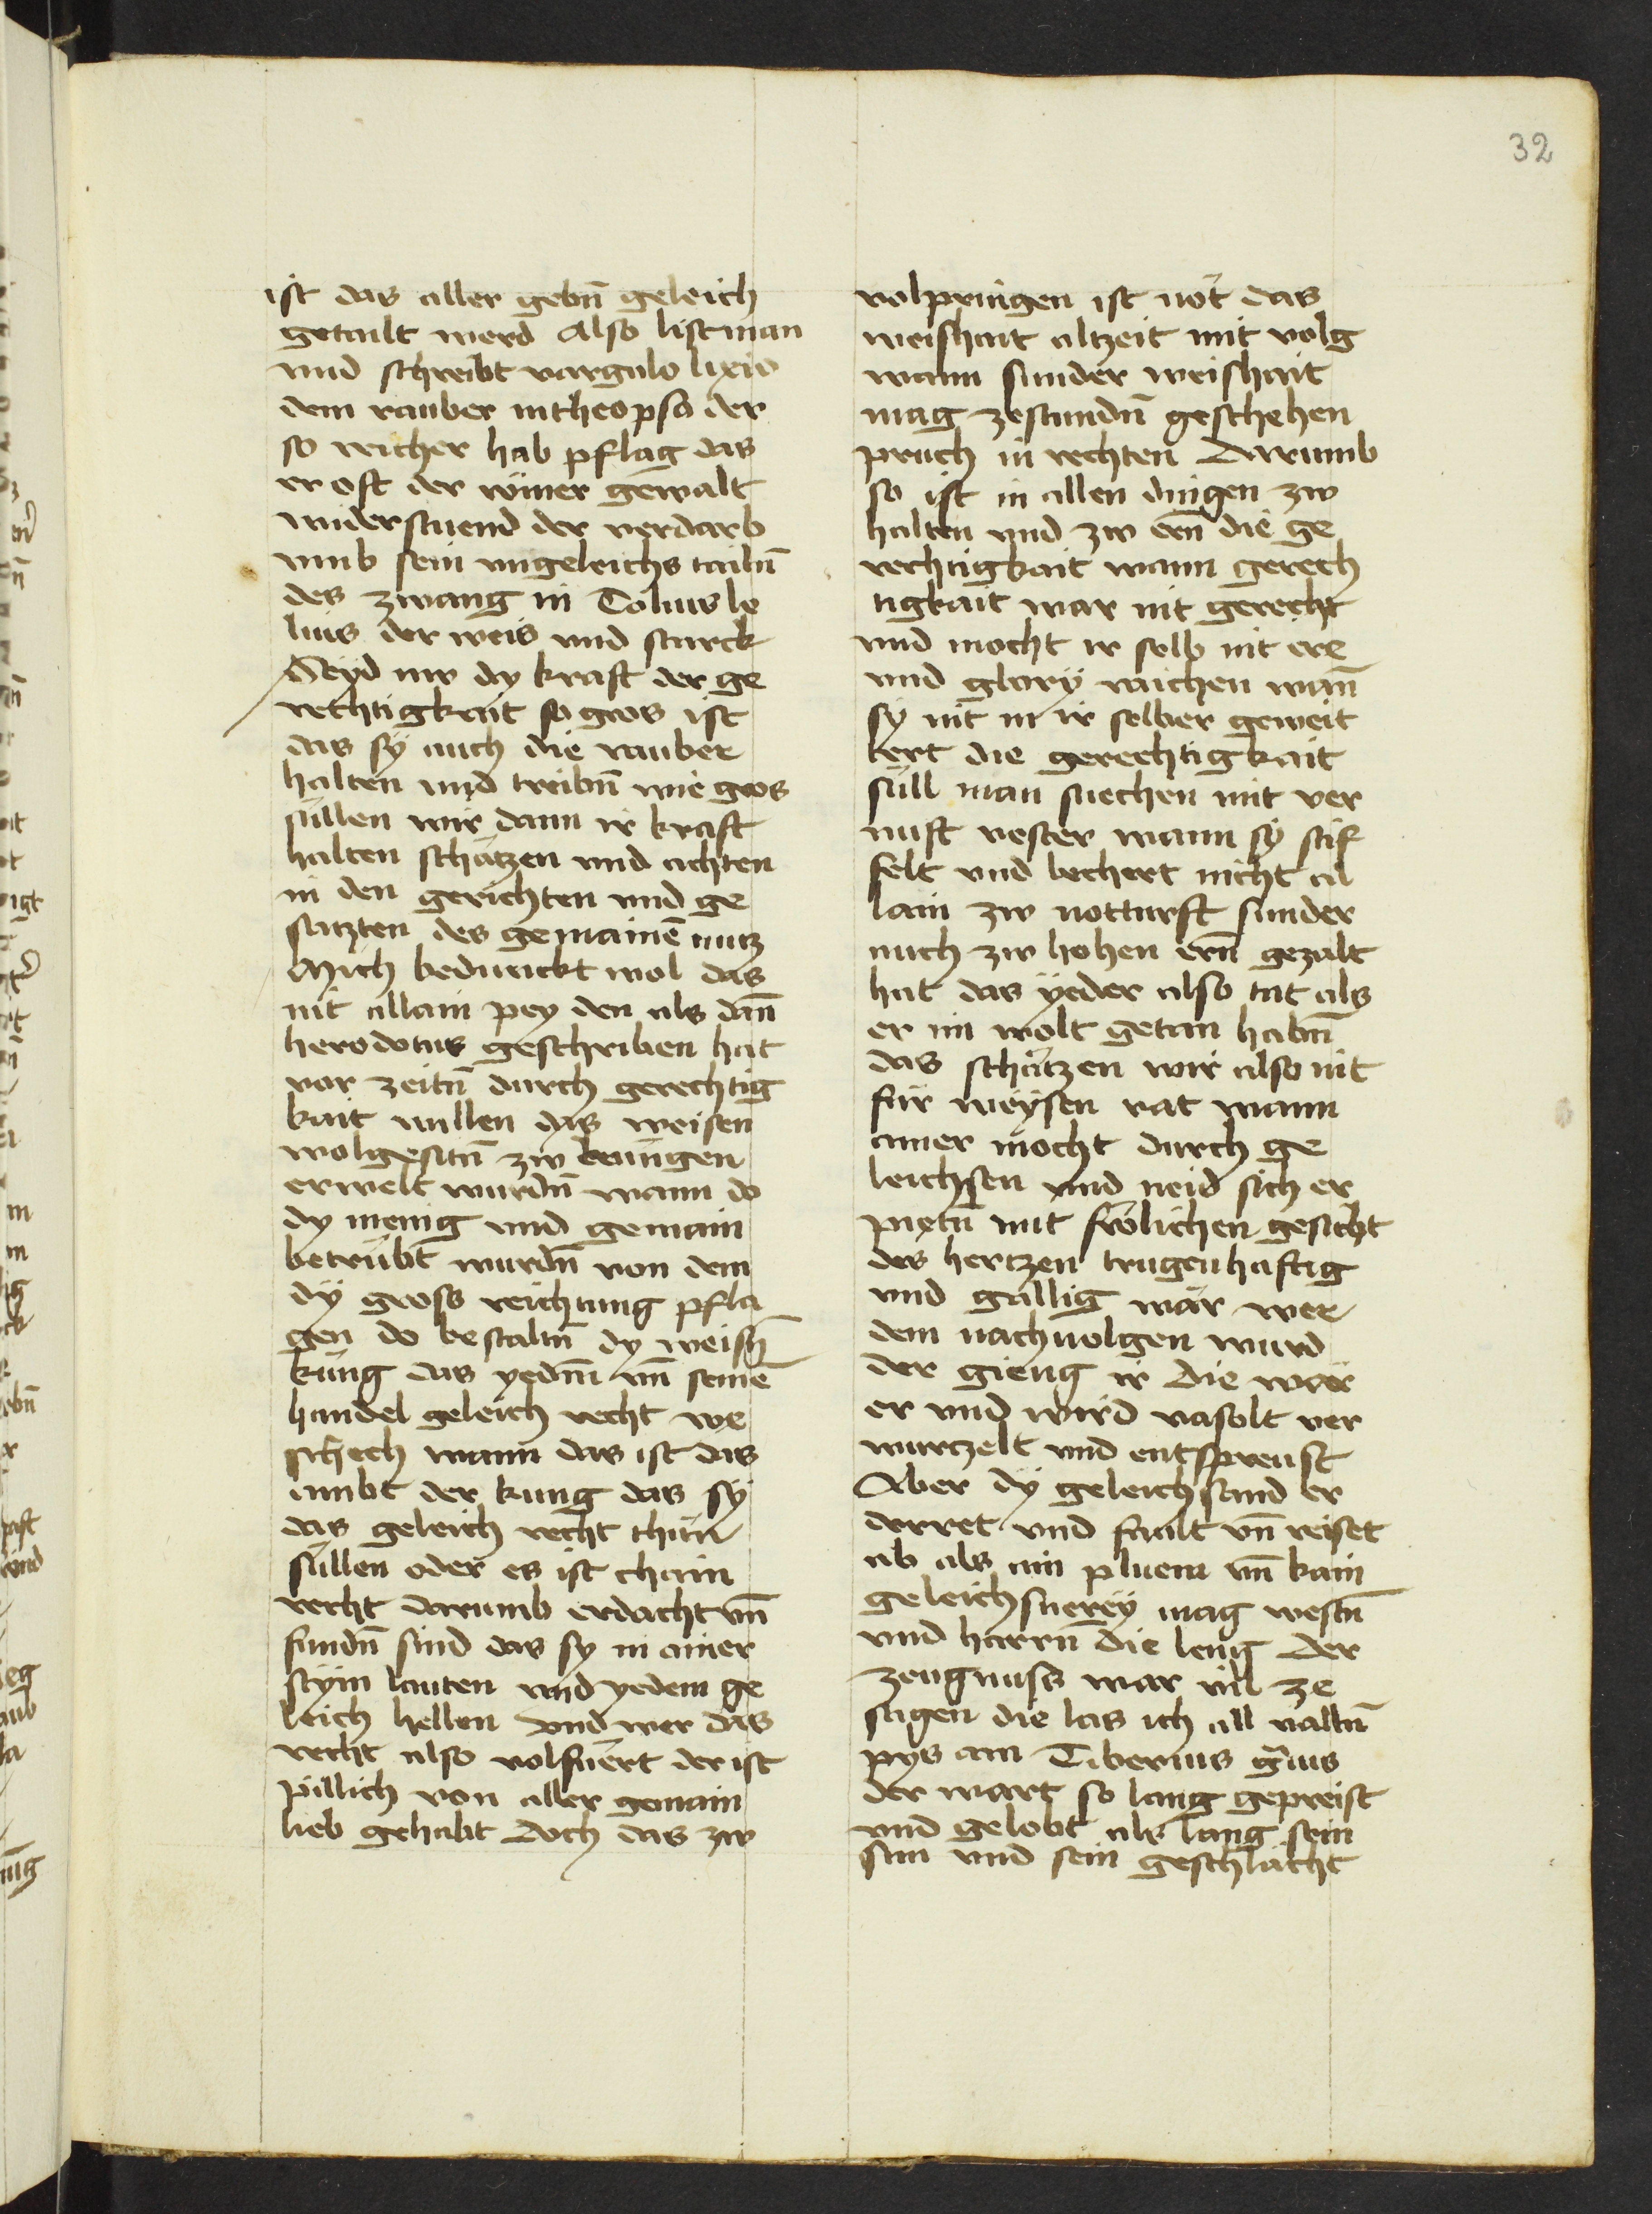 32
ist das aller gebn̄ geleich
getailt werd Also list man
und schreibt vargulo lixio
dem rauber in theopso der
so reicher hab pflag das
er oft der römer gewalt
widerstuend der verdarb
umb sein ungeleichs tailn̄
des zwang in Tolius le
lius der weis und starck
Seyd nw dy kraft der ge
rechtigkait so gros ist
das sÿ auch die rauber
halten und treibn̄ wie gros
süllen wir dann ir kraft
halten schätzen und achten
in den gerichten und ge
satzten des gemainē nutz
Mich bedunckt wol das
nit allain pey den als dan̄
herodotus geschriben hat
vor zeitn̄ durch gerechtig
kait willen das weisen
wolgesitn̄ zw kunigen
erwelt wurdn̄ wann do
dy menig und gemain
betrübt wurdn̄ von dem
dÿ gross reichtung pfla
gen do bestaltn̄ dy weisn̄
küng das yedm̄ vn̄ seinē
handel geleich recht we
schech wann das ist das
ambt der kung das sÿ
das geleich recht thün
süllen oder es ist chain
recht darumb erdacht vn̄
fundn̄ sind das sy in ainer
stÿm lauten und yedem ge
leich hellen vnd wer das
recht also volfüert der ist
pillich von aller gemain
lieb gehabt doch das zw
volpringen ist nöt das
weishait altzeit mit volg
wann sunder weishait
mag zestundn̄ geschehen
pruch in rechten Darumb
so ist in allen dingen zw
halten und zw ern̄ die ge
rechtigkait wann gerech
tigkait war nit gerecht
und mocht ir selb nit ere
und glory raichen wan̄
sy nit in ir selber geweit
tert die gerechtigkait
süll man suechen mit ver
nuft vester wann sÿ stif
felt vnd bechert nicht al
lain zw notturft sunder
auch zw hohen ern̄ gezalt
hat das ÿeder also tät als
er im wolt getan habn̄
das schätzen wir also nit
für weÿsen rat wann
ainer möcht durch ge
leichsen vnd neid sich er
pietn̄ mit frölichen gesicht
des hertzen trugenhaftig
und gällig wär wer
dem nachuolgen wurd
der gieng ir die wär
er und wird vasolt ver
wurtzelt und entspreust
Aber dÿ geleichsand er
derret und fault vn̄ reiset
ab als ain pluem vn̄ kain
geleichsnerey mag westn̄
und harrn̄ die leng Der
zeugnuss war vil ze
sagen die las ich all valln̄
pys am Tiberius grius
der wart so lang gepreist
und gelobt als lang sein
sun und sein geschlächt